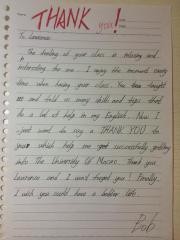 THANK you!
To Lawrence:
The feeling of your class is relaxing and
interesting for me. I enjoy the moment every
time when having your class. You taught
me and told us many skills and tips that
do a lot of help in my English. Now I
just want to say a THANK YOU to
you which help me successfully getting
into The University Of Macau. Thank you
Lawrence and I won't forget you! Finally,
I wish you could have a better life.
Bob